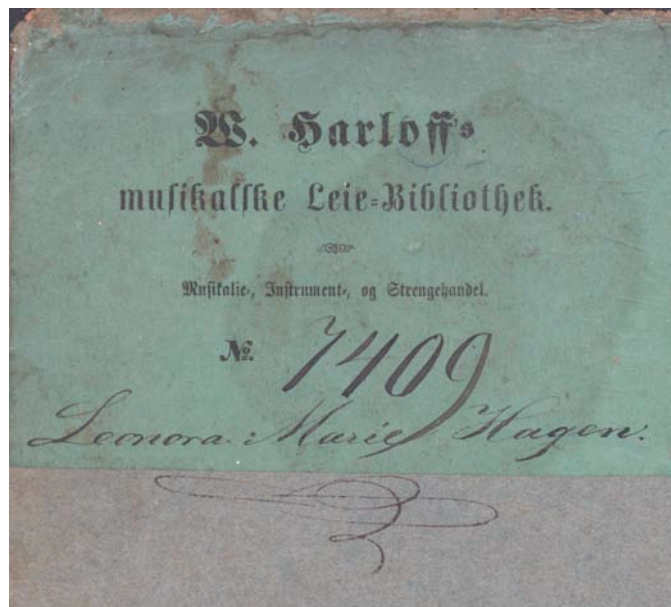 W. Harloff's
musikalske Leie-Bibliothek.
Musikalie-, Instrument-, og Strengehandel.
No. 7409
Leonora Marie Hagen.